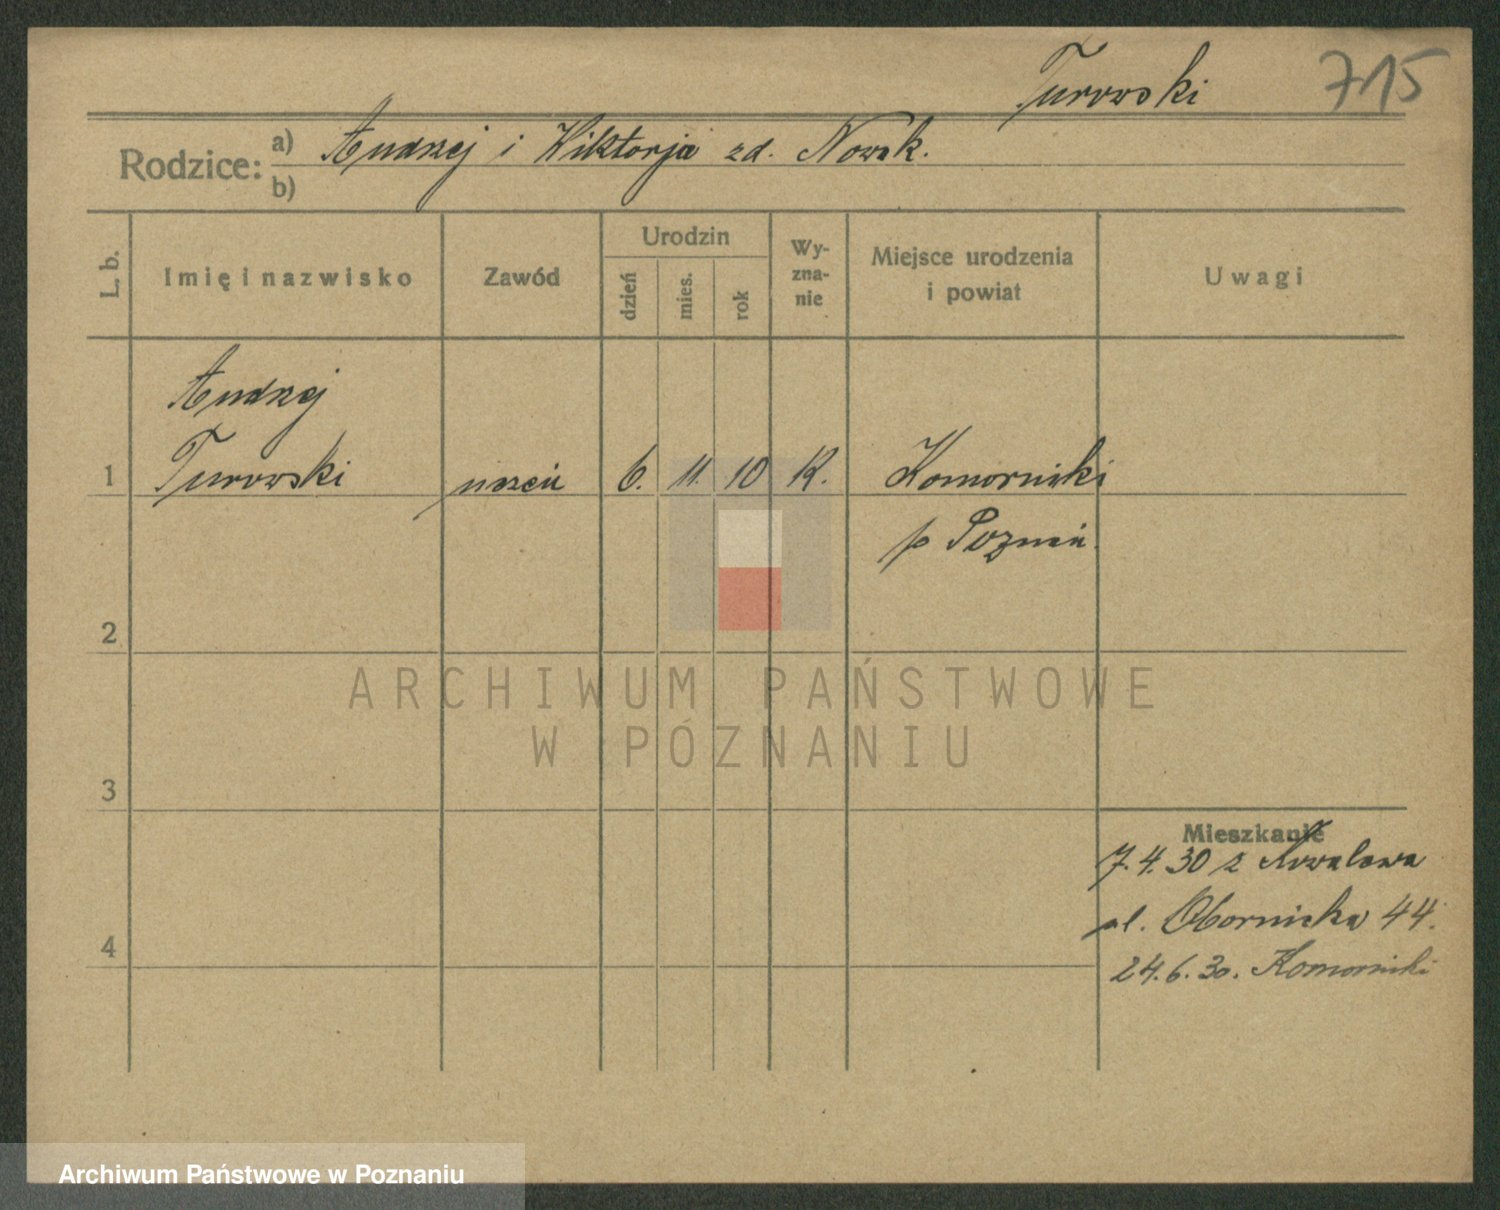 Turowski 715
Rodzice: a) Andrzej i Wiktorja zd. Nowak.
b)
L. b. Imię i nazwisko Zawód Urodzin dzień mies. rok Wy-zna-nie Miejsce urodzenia i powiat Uwagi
Andrzej
1 Turowski uczeń 6. 11. 10 K. Komorniki
p Poznań.
2
3
Mieszkanie
7.4.30 z Kowalewa
ul. Obornicka 44.
4
24.6.30. Komorniki
ARCHIWUM PAŃSTWOWE
W POZNANIU
Archiwum Państwowe w Poznaniu